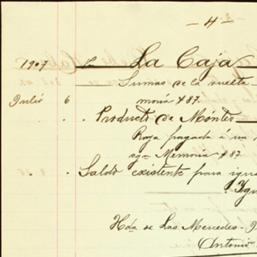 - 4 -
1907 La Caja
Sumas de la vuelta
Julio 6 moria # 87
Producto de Montes
Raya pagada á
Memoria # 87
Saldo existente para
Hda. de Las Mercedes
Antonio